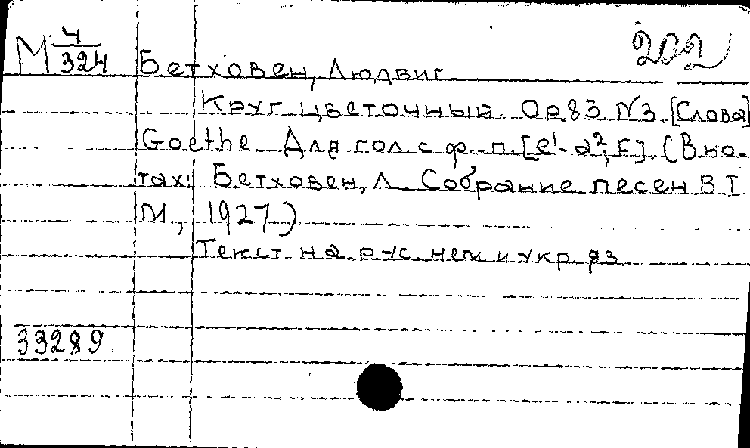 М 4/324
202
Бетховен, Людвиг
Круг цветочный Op.83 N3. [Слова]
Goethe. Для гол. с ф.-п. [e¹-a², F]. (В но-
тах: Бетховен, Л. Собрание песен в I
М., 1927)
Текст на рус. нем и укр яз
33289